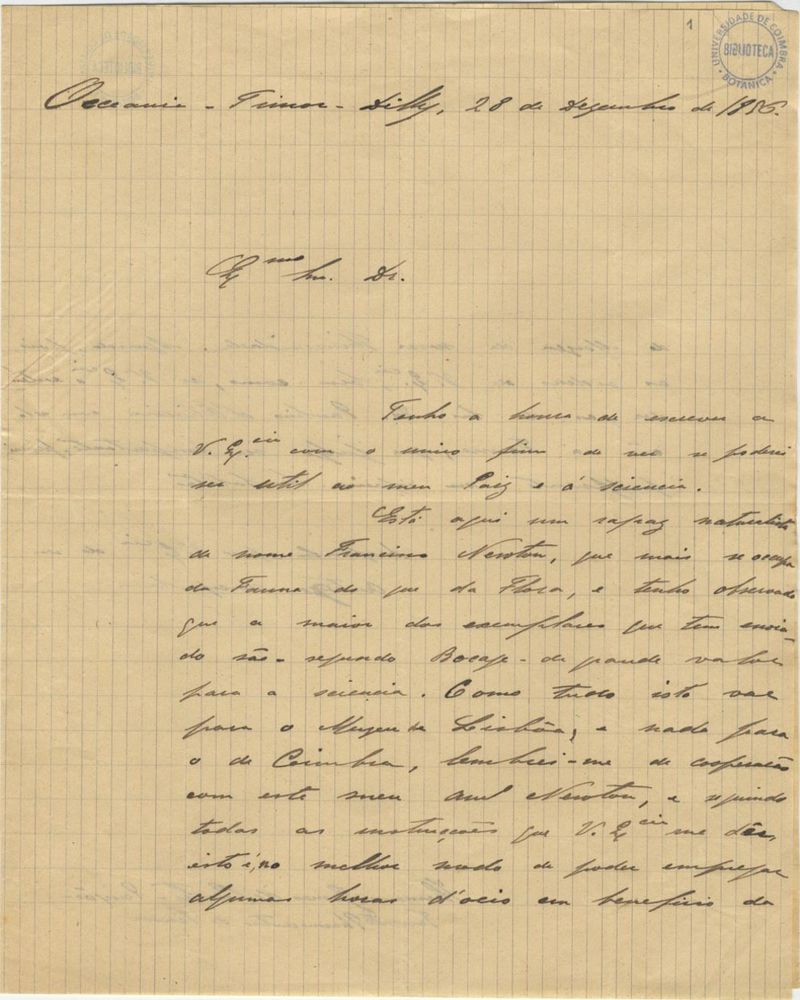 1
UNIVERSIDADE DE COIMBRA
BIBLIOTECA
BOTANICA
Occeania - Timor - Dilly, 28 de Dezembro de 1896.
Exmo Snr. Dr.
Tenho a honra de escrever a
V. Excia com o unico fim de ver se poderei
ser util ao meu Paiz e á sciencia.
Está aqui um rapaz naturalista
de nome Francisco Newton, que mais se occupa
da Fauna do que da Flora, e tenho observado
que a maior dos exemplares que tem envia-
do são - segundo Bocage - de grande valor
para a sciencia. Como tudo isto vae
para o Muzeu de Lisbôa, e nada para
o de Coimbra, lembrei-me de cooperação
com este meu Newton, e seguindo
todas as instrucções que V. Excia me dêr,
isto é, no melhor modo de poder empregar
algumas horas d'ocio em beneficio da